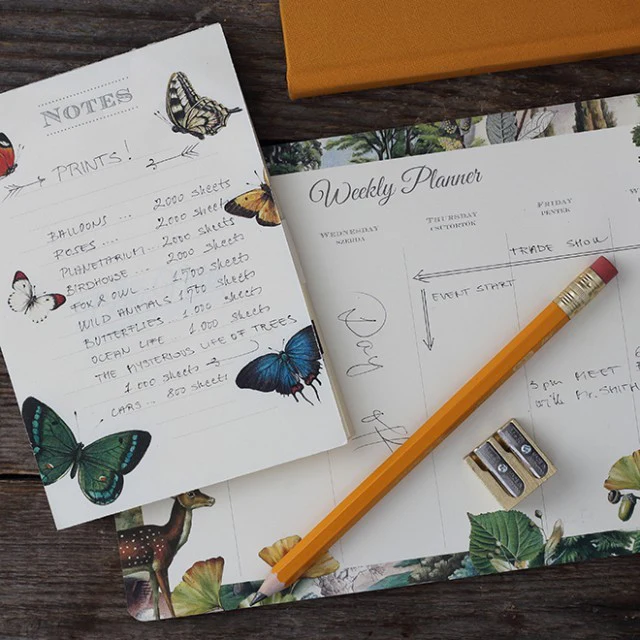 NOTES
PRINTS!
BALLOONS ... 2000 sheets
POSES ... 2000 sheets
PLANETARIUM ... 2000 sheets
BIRDHOUSE ... 2000 sheets
FOX & OWL ... sheets
WILD ANIMALS sheets
BUTTERFLIES ... 1.000 sheets
OCEAN LIFE ... 1.000 sheets
THE MYSTERIOUS LIFE OF TREES
1.000 sheets
CARS ... 800 sheets
Weekly Planner
WEDNESDAY
SZERDA
THURSDAY
CSÜTÖRTÖK
FRIDAY
PÉNTEK
TRADE SHOW
EVENT START
Day
off
3 pm MEET
with Mr.